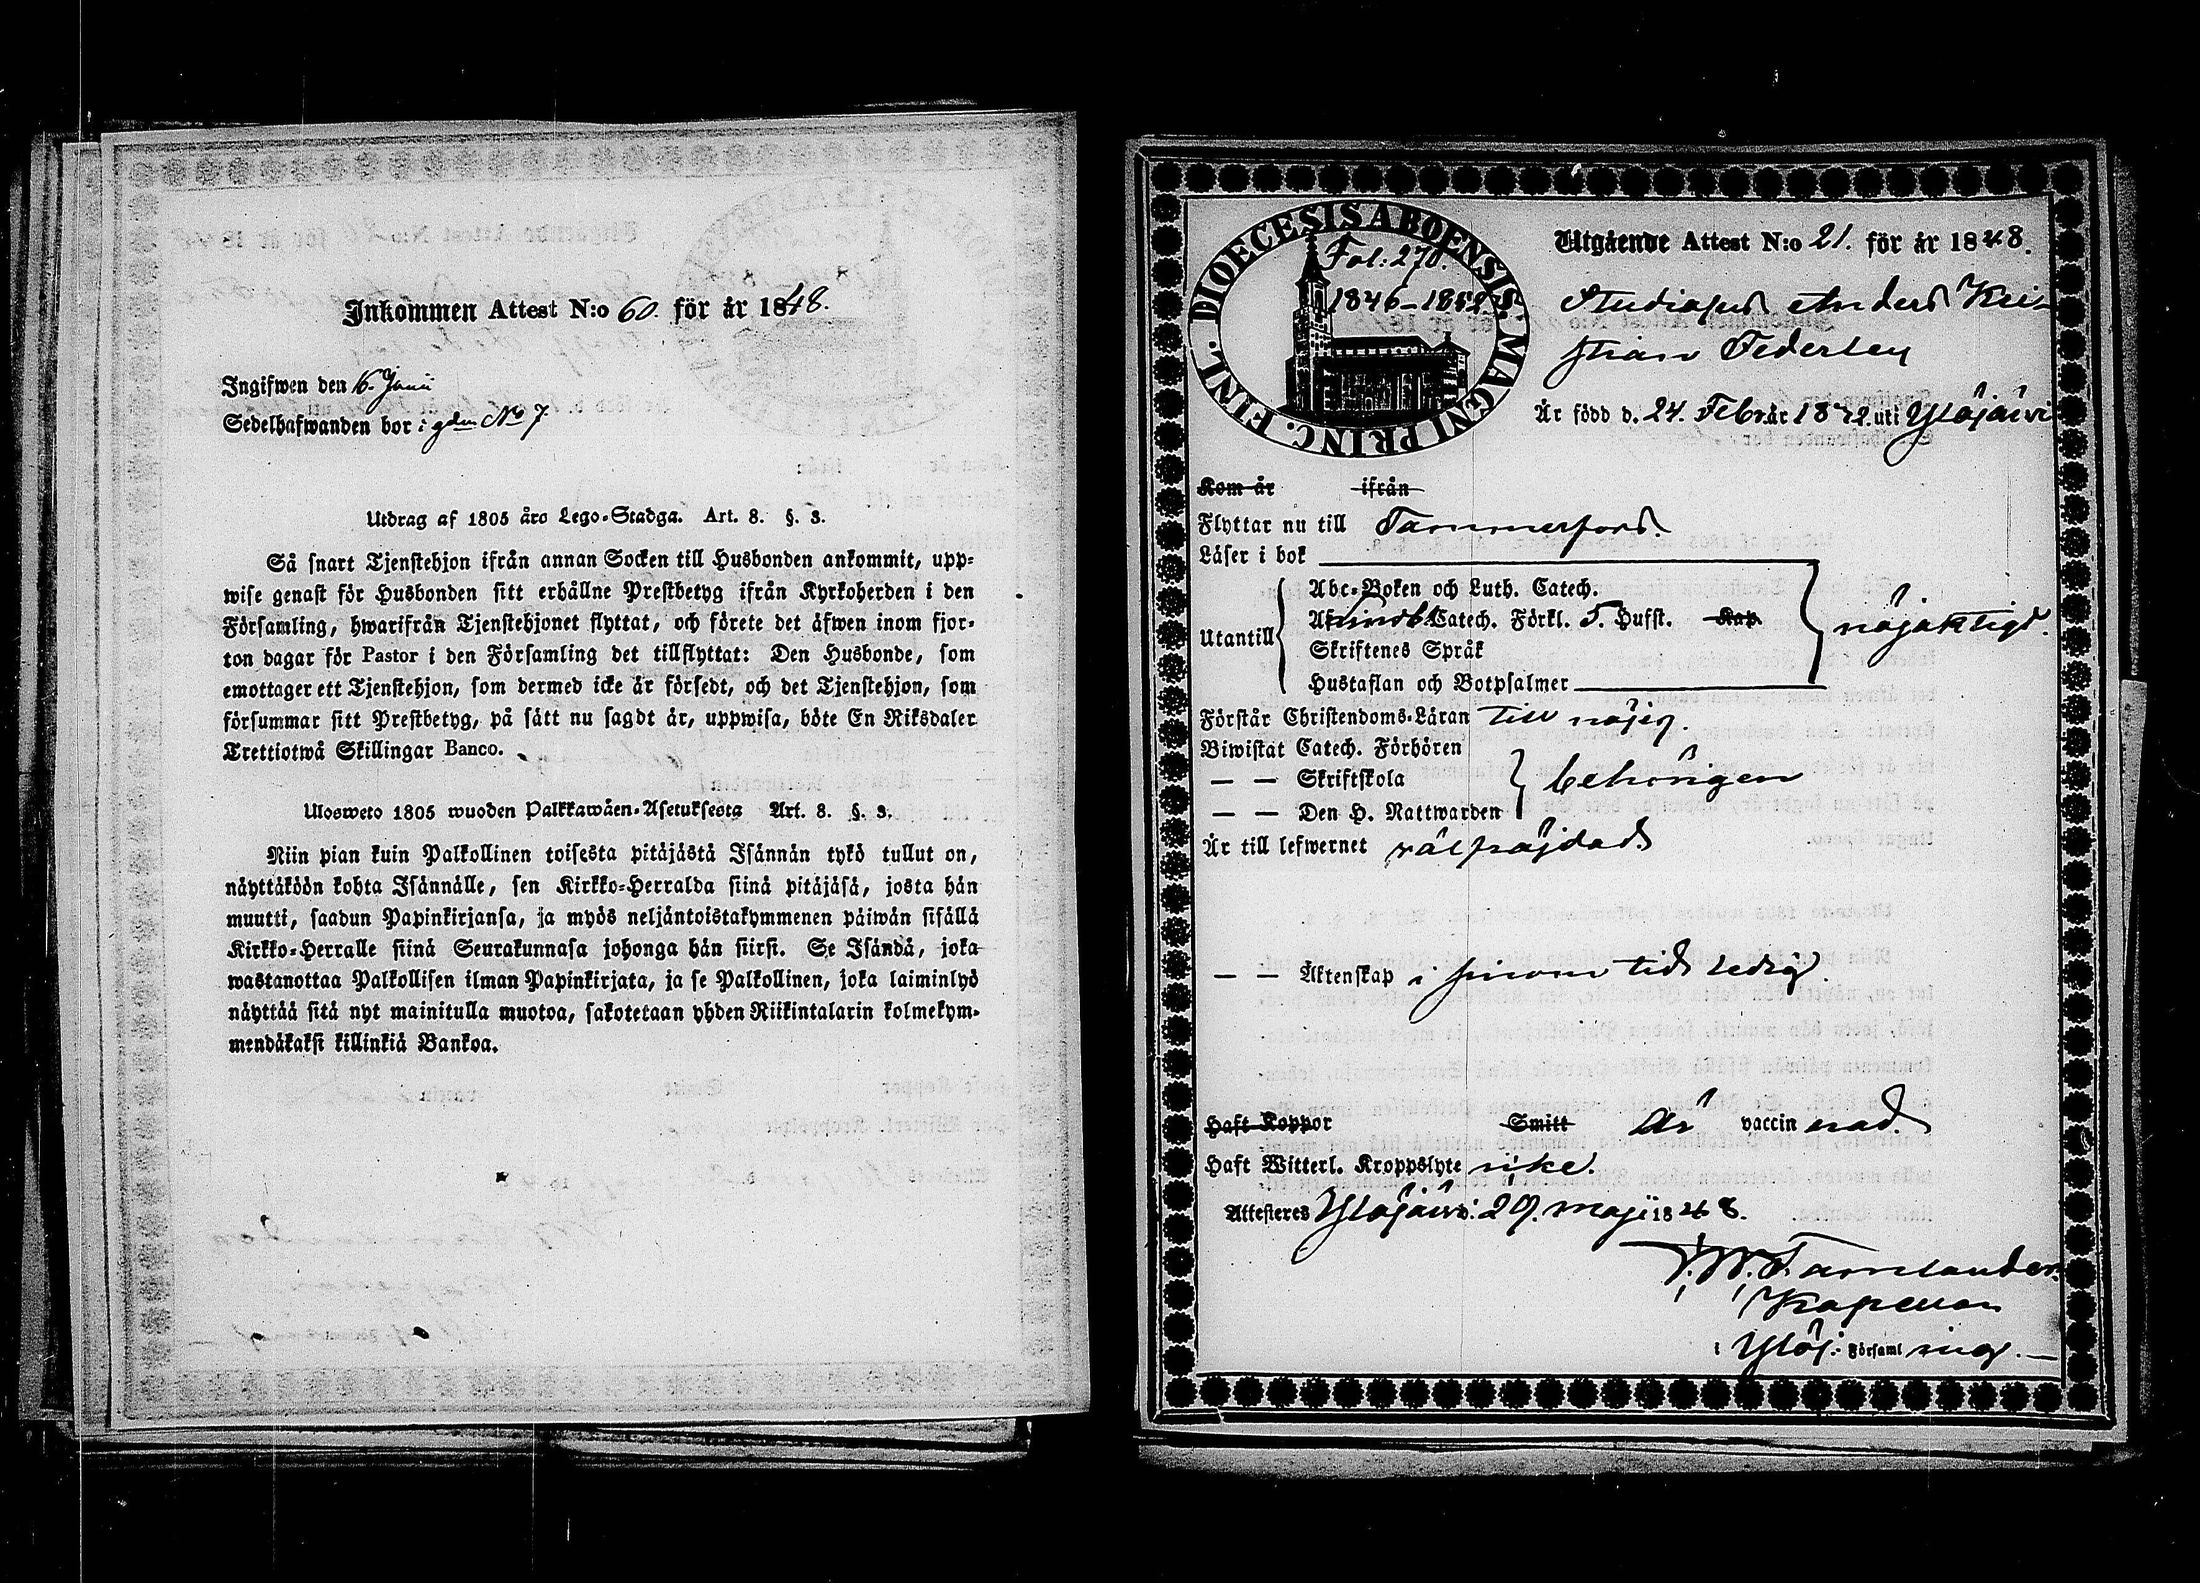 Inkommen Attest N:o 60. för år 1848.
Ingifwen den 16. Junii
Sedelhafwanden bor i gdn No 7
Utdrag af 1805 års Lego-Stadga. Art. 8. §. 3.
Så snart Tjenstehjon ifrån annan Socken till Husbonden ankommit, upp-
wise genast för Husbonden sitt erhållne Prestbetyg ifrån Kyrkoherden i den
Församling, hwarifrån Tjenstehjonet flyttat, och förete det äfwen inom fjor-
ton dagar för Pastor i den Församling det tillflyttat: Den Husbonde, som
emottager ett Tjenstehjon, som dermed icke är försedt, och det Tjenstehjon, som
försummar sitt Prestbetyg, på sätt nu sagdt är, uppwisa, böte En Riksdaler
Trettiotwå Skillingar Banco.
Ulosweto 1805 wuoden Palkkawäen-Asetuksesta Art. 8. §. 3.
Niin pian kuin Palkollinen toisesta pitäjästä Isännän tykö tullut on,
näyttäköön kohta Isännälle, sen Kirkko-Herralda siinä pitäjäsä, josta hän
muutti, saadun Papinkirjansa, ja myös neljäntoistakymmenen päiwän sisällä
Kirkko-Herralle siinä Seurakunnasa johonga hän siirsi. Se Isändä, joka
wastanottaa Palkollisen ilman Papinkirjata, ja se Palkollinen, joka laiminlyö
näyttää sitä nyt mainitulla muotoa, sakotetaan yhden Riikintalarin kolmekym-
mendäkaksi killinkiä Bankoa.
DIOECESIS ABOENSIS MAGNI PRINC. FINL.
Fol: 270.
1846-1852
Utgående Attest N:o 21. för år 1848.
Studiosus Anders Kri-
stian Federley
Är född d. 24. Febr. år 1822. uti Ylöjärvi
Kom år ifrån
Flyttar nu till Tammerfors.
Läser i bok
Utantill
Abc-Boken och Luth. Catech.
Catech. Förkl. 5. Hufst. Kap.
Skriftenes Språk
Hustaflan och Botpsalmer
nöjaktigt.
Förstår Christendoms-Läran till nöjes.
Biwistat Catech. Förhören
— — Skriftskola
— — Den H. Nattwarden
behörigen
Är till lefwernet välfräjdad.
— — Äktenskap i sinom tid ledig.
Haft Koppor Smitt Är vaccinerad.
Haft Witterl. Kroppslyte icke.
Attesteres Ylöjärvi. 29. maji 1848.
Kapellan
i Ylöj: Församling.